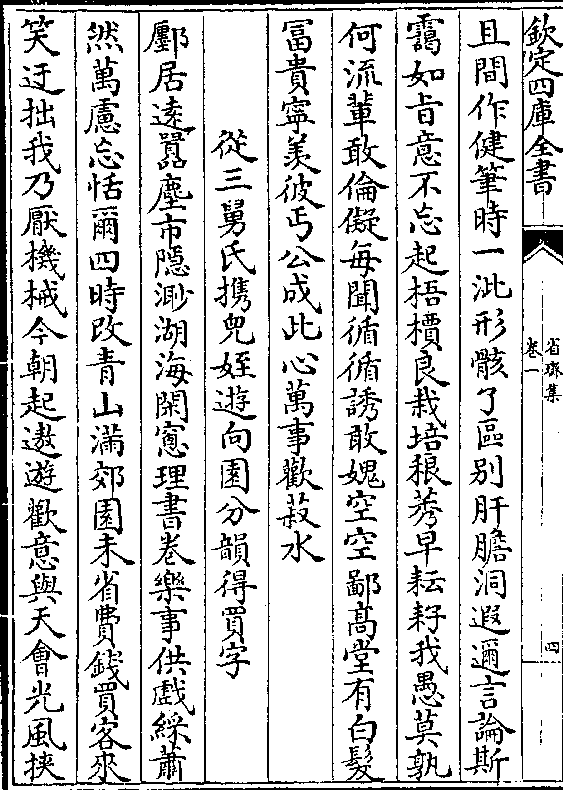 欽定四庫全書
省齋集
卷一
四
且間作健筆時一泚形骸了區别肝膽洞遐邇言論斯
靄如旨意不忘起梧檟良栽培稂莠早耘耔我愚莫孰
何流輩敢倫儗每聞循循誘敢媿空空鄙高堂有白髮
冨貴寧羡彼丐公成此心萬事歡菽水
從三舅氏携兒姪遊向園分韻得買字
鄽居逺嚣塵市隠渺湖海閑窻理書卷樂事供戲綵蕭
然萬慮忘恬爾四時改青山滿郊園未省費錢買客來
笑迂拙我乃厭機械今朝起遨遊歡意與天會光風挾